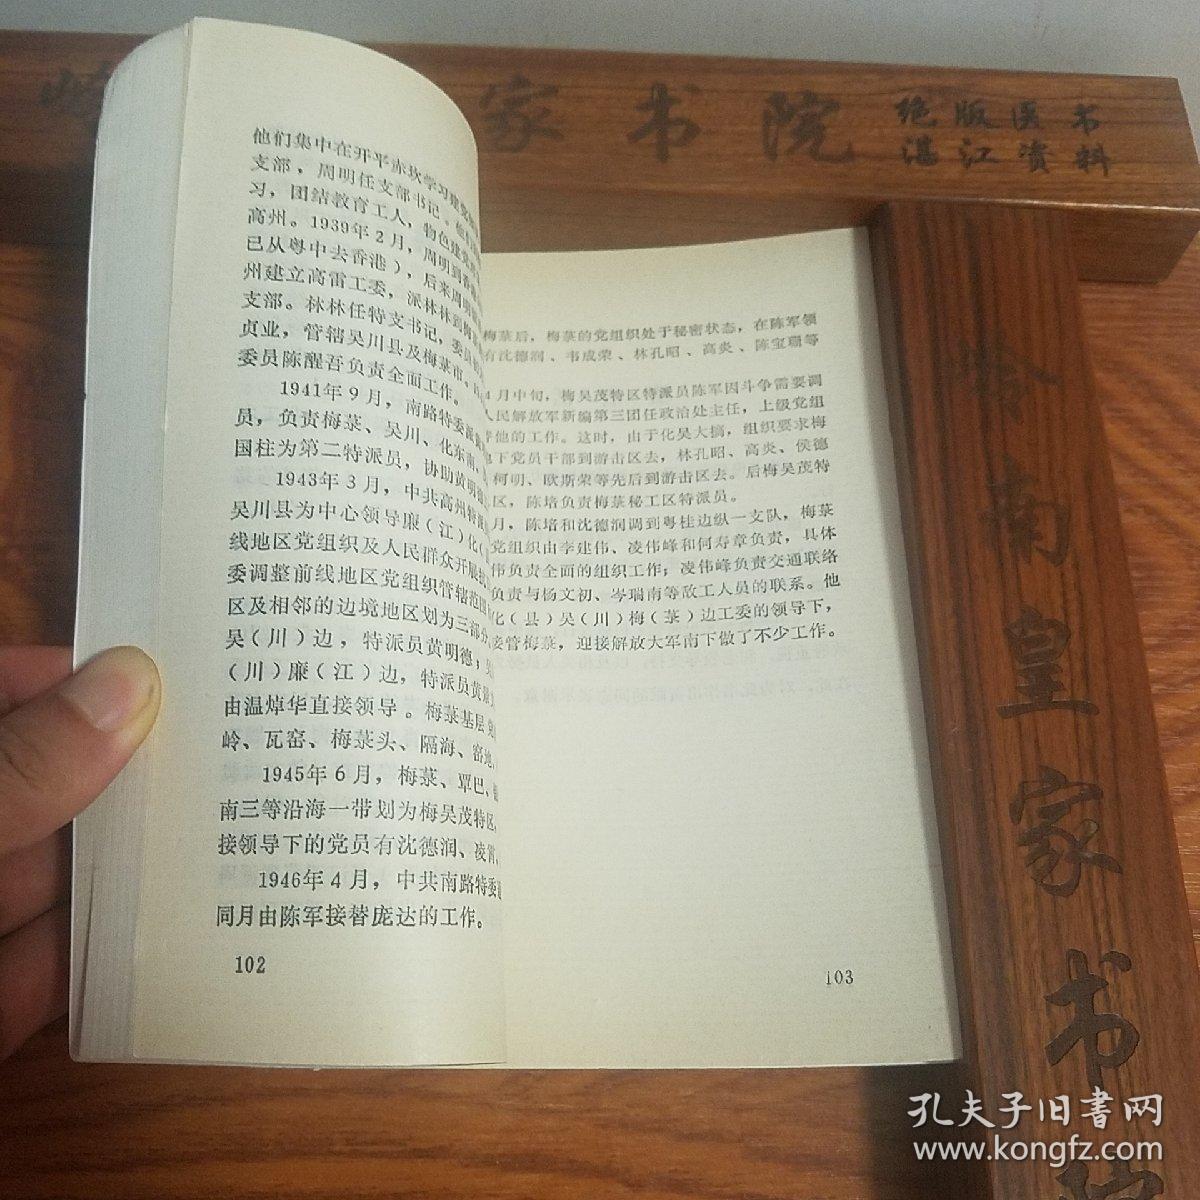 家书院
绝版医书
湛江资料
岭南皇家书院
他们集中在开平赤坎学习建党
支部，周明任支部书记。他们
习，团结教育工人，物色建党
高州。1939年2月，周明到香
已从粤中去香港），后来周明
州建立高雷工委，派林林到梅
支部。林林任特支书记，委员
贞业，管辖吴川县及梅菉市。
委员陈醒吾负责全面工作。
1941年9月，南路特委派黄
员，负责梅菉、吴川、化东南、
国柱为第二特派员，协助黄明德
1943年3月，中共高州特派
吴川县为中心领导廉（江）化（
线地区党组织及人民群众开展抗
委调整前线地区党组织管辖范围
区及相邻的边境地区划为三部分
吴（川）边，特派员黄明德；吴
（川）廉（江）边，特派员黄景文
由温焯华直接领导。梅菉基层
岭、瓦窑、梅菉头、隔海、窑地，
1945年6月，梅菉、覃巴、
南三等沿海一带划为梅吴茂特区，
接领导下的党员有沈德润、凌霄，
1946年4月，中共南路特委
同月由陈军接替庞达的工作。
102
梅菉后，梅菉的党组织处于秘密状态，在陈军领
有沈德润、韦成荣、林孔昭、高炎、陈宝珊等
4月中旬，梅吴茂特区特派员陈军因斗争需要调
人民解放军新编第三团任政治处主任，上级党组
替他的工作。这时，由于化吴大搞，组织要求梅
地下党员干部到游击区去，林孔昭、高炎、侯德
、柯明、欧斯荣等先后到游击区去。后梅吴茂特
区，陈培负责梅菉秘工区特派员。
月，陈培和沈德润调到粤桂边纵一支队，梅菉
党组织由李建伟、凌伟峰和何寿章负责，具体
伟负责全面的组织工作；凌伟峰负责交通联络
负责与杨文初、岑瑞南等敌工人员的联系。他
化（县）吴（川）梅（菉）边工委的领导下，
接管梅菉，迎接解放大军南下做了不少工作。
103
孔夫子旧书网
www.kongfz.com